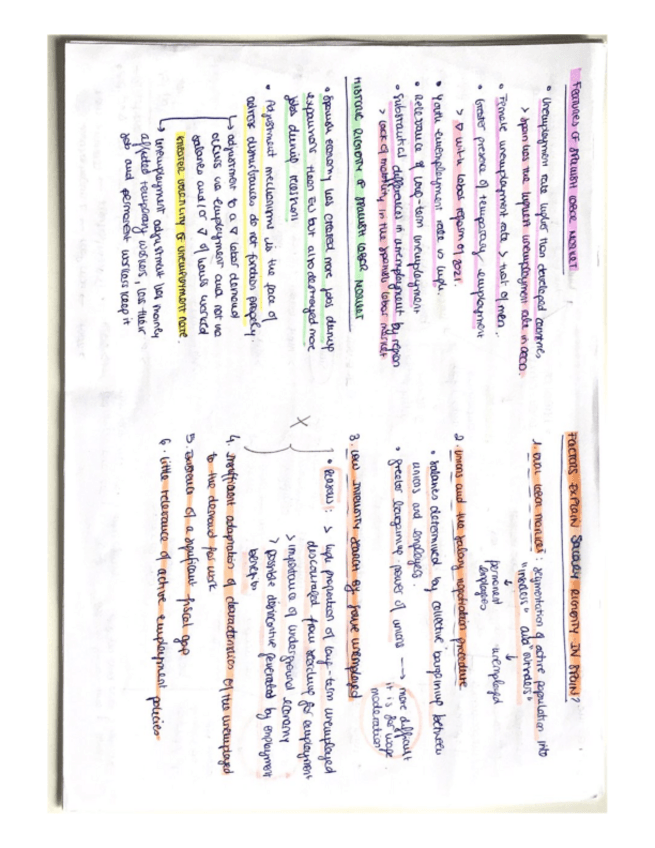 FEATURES OF SPANISH LABOR MARKET
• Unemployment rate higher than developed countries
> Spain has the highest unemployment rate in OECD.
• Female unemployment rate > that of men.
• Greater presence of temporary employment
> ∇ with labor reform of 2021.
• Youth unemployment rate is high.
• Relevance of long-term unemployment
• Substantial differences in unemployment by region
> lack of mobility in the Spanish labor market
HISTORIC RIGIDITY OF SPANISH LABOR MARKET
• Spanish economy has created more jobs during
expansions than EU but also destroyed more
jobs during recession
• Adjustment mechanisms in the face of
adverse disturbances do not function properly.
↳ adjustment to a ∇ labor demand
occurs via employment and not via
salaries and/or ∇ of hours worked
GREATER VOLATILITY OF UNEMPLOYMENT RATE.
↳ unemployment adjustment has mainly
affected temporary workers, lose their
job and permanent workers keep it
FACTORS EXPLAIN SALARY RIGIDITY IN SPAIN?
1. DUAL LABOR MARKET: segmentation of active population into
"insiders" and "outsiders"
↓ ↓
permanent unemployed
employees
2. Unions and the salary negotiation procedure
• Salaries determined by collective bargaining between
unions and employers.
• greater bargaining power of unions → more difficult
it is for wage
moderation
3. LOW INTENSITY SEARCH BY SOME UNEMPLOYED
• REASONS: > high proportion of long-term unemployed
discouraged from searching for employment
> importance of underground economy
> possible disincentive generated by employment
benefits
4. Inefficient adaptation of characteristics of the unemployed
to the demand for work
5. Existence of a significant fiscal gap
6. Little relevance of active employment policies